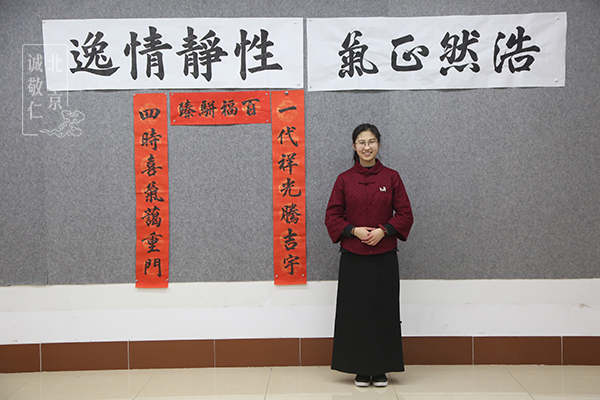 浩然正氣
性靜情逸
百福駢臻
一代祥光騰吉宇
四時喜氣藹重門
北京
诚敬仁